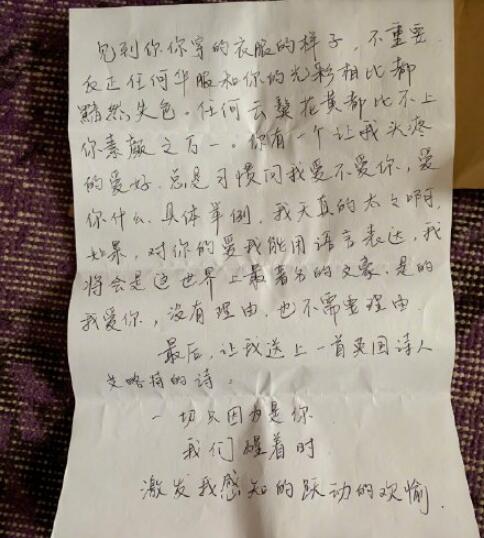 见到你你穿的衣服的样子，不重要
反正任何华服和你的光彩相比都
黯然失色。任何云鬓花黄都比不上
你素颜之万一。你有一个让我头疼
的爱好，总是习惯问我爱不爱你，爱
你什么，具体举例，我天真的太太啊，
如果，对你的爱我能用语言表达，我
将会是这世界上最著名的文豪，是的
我爱你，没有理由，也不需要理由
最后，让我送上一首英国诗人
艾略特的诗。
一切只因为是你
我们醒着时
激发我感知的跃动的欢愉